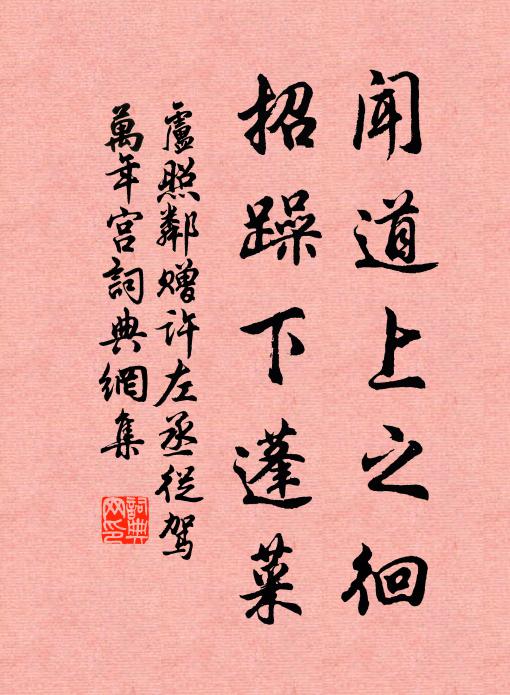 闻道上之徊
招躁下蓬菜
盧照鄰赠許左丞從駕
萬年宫詞典網集
詞典网印